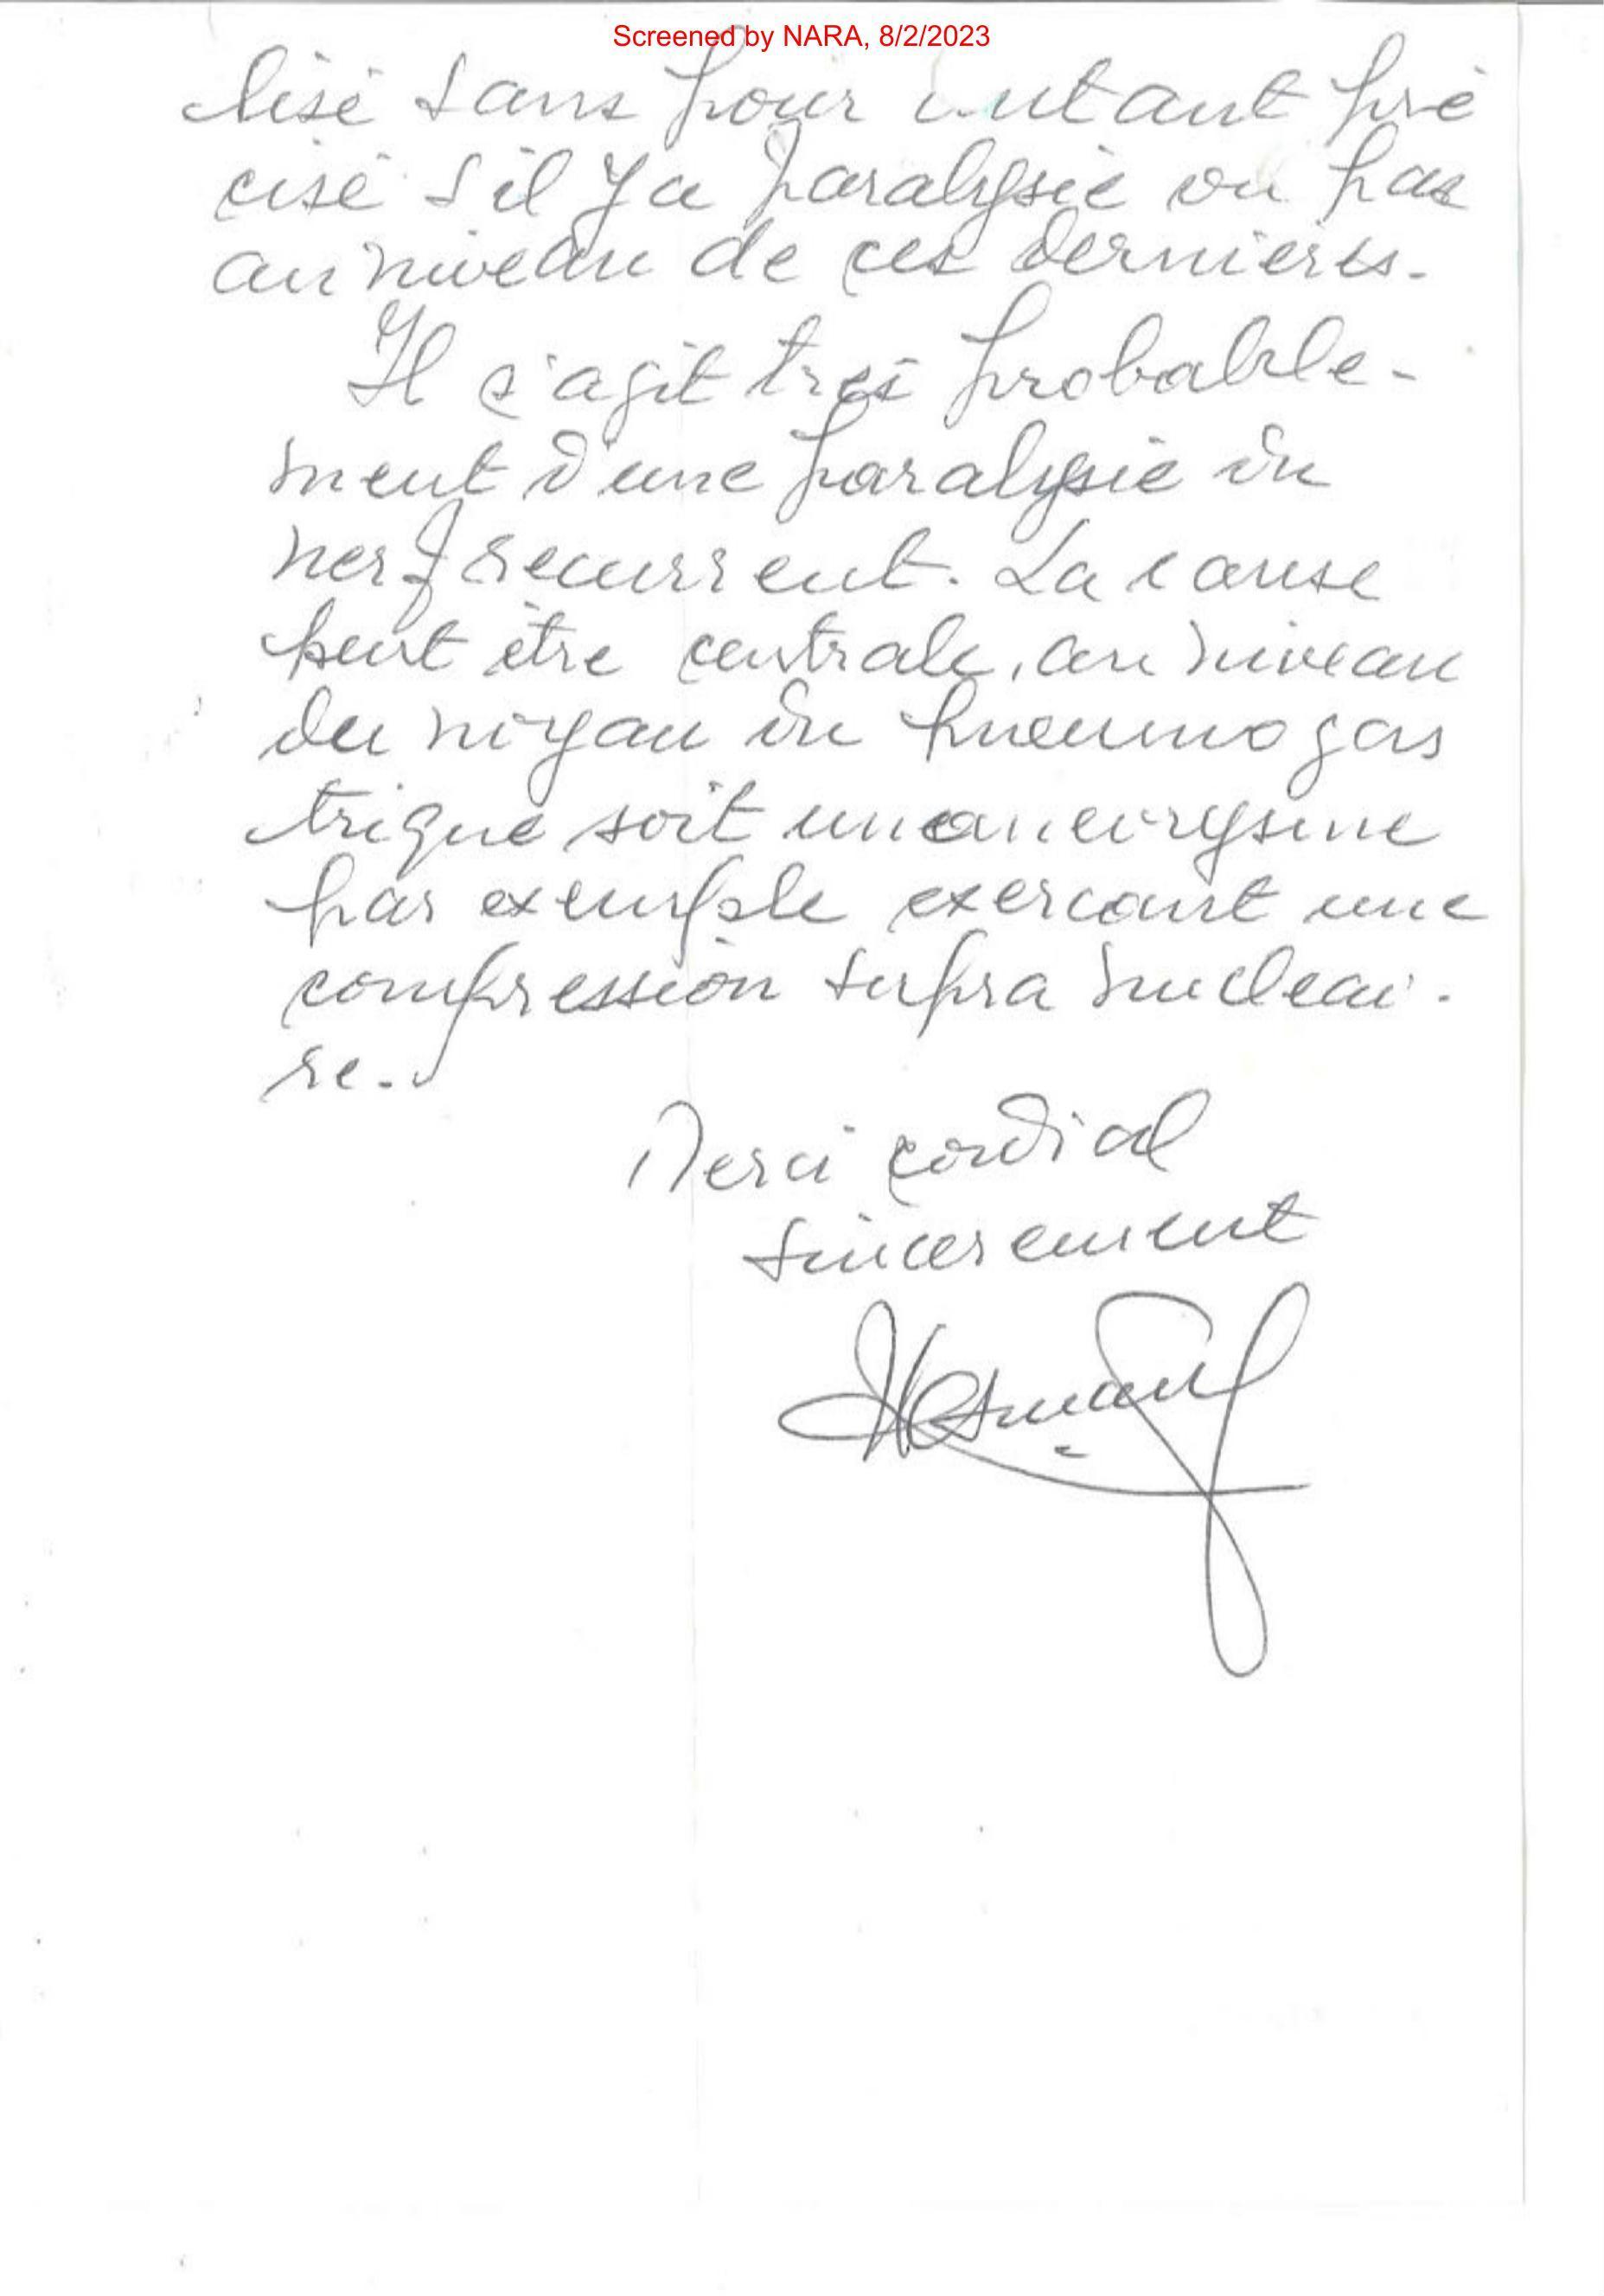 Screened by NARA, 8/2/2023
lisé sans pour autant pré
cisé s'il y a paralysie ou pas
au niveau de ces dernieres.
Il s'agit tres probable-
ment d'une paralysie du
nerf recurrent. La cause
peut être centrale, au niveau
du noyau du pneumogas
trique soit un anevrysme
par exemple exercant une
compression supra nucleai-
re.
Merci cordial
sincerement